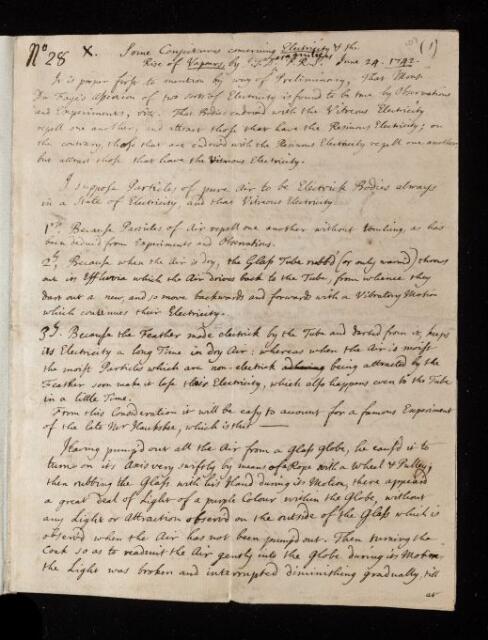 No 28 X. Some Conjectures concerning Electricity & the (1)
Rise of Vapours, by J. T. D. F.R.S. June 24. 1742.
It is proper first to mention by way of Preliminary, That Mons.
Du Faye's Assertion of two sorts of Electricity is found to be true by Observations
and Experiments, viz. That Bodies endowed with the Vitreous Electricity
repell one another, and attract those that have the Resinous Electricity; on
the contrary, those that are endowed with the Resinous Electricity repell one another,
but attract those that have the Vitreous Electricity.
I suppose Particles of pure Air to be Electrick Bodies always
in a State of Electricity, and that Vitreous Electricity.
1st. Because Particles of Air repell one another without touching, as has
been deduced from Experiments and Observations.
2ly. Because when the Air is dry, the Glass Tube rubb'd (or only warm'd) throws
out its Effluvia which the Air drives back to the Tube, from whence they
dart out a new, and so move backwards and forwards with a Vibratory Motion
which continues their Electricity.
3ly. Because the Feather made electrick by the Tube and darted from it, keeps
its Electricity a long Time in dry Air: whereas when the Air is moist
the moist Particles which are non-electrick adhering being attracted by the
Feather soon make it lose their Electricity, which also happens even to the Tube
in a little Time.
From this Consideration it will be easy to account for a famous Experiment
of the late Mr Hauksbee, which is this —
Having pump'd out all the Air from a Glass Globe, he caus'd it to
turn on its Axis very swiftly by means of a Rope with a Wheel & Pulley;
then rubbing the Glass with his Hand during its Motion, there appeared
a great deal of Light of a purple Colour within the Globe, without
any Light or Attraction observ'd on the outside of the Glass which is
observed when the Air has not been pump'd out. Then turning the
Cock so as to readmit the Air gently into the Globe during its Motion
the Light was broken and interrupted diminishing gradually, till
at